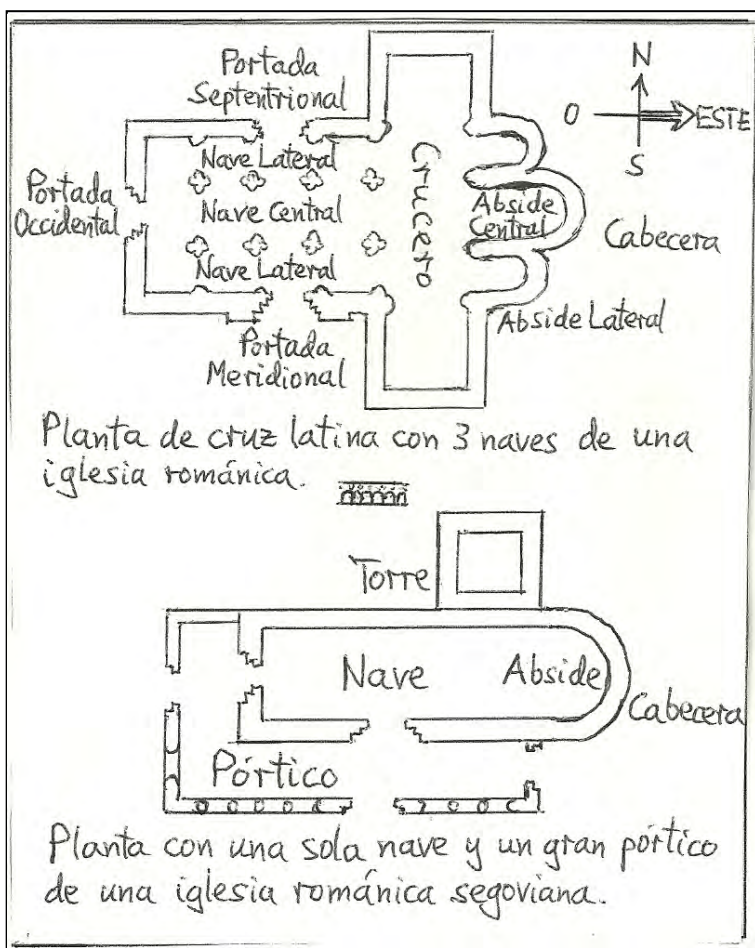 Portada
Septentrional
N
O
ESTE
S
Nave Lateral
Portada
Occidental
Nave Central
Crucero
Abside
Central
Cabecera
Nave Lateral
Abside Lateral
Portada
Meridional
Planta de cruz latina con 3 naves de una
iglesia románica.
Torre
Nave
Abside
Cabecera
Pórtico
Planta con una sola nave y un gran pórtico
de una iglesia románica segoviana.